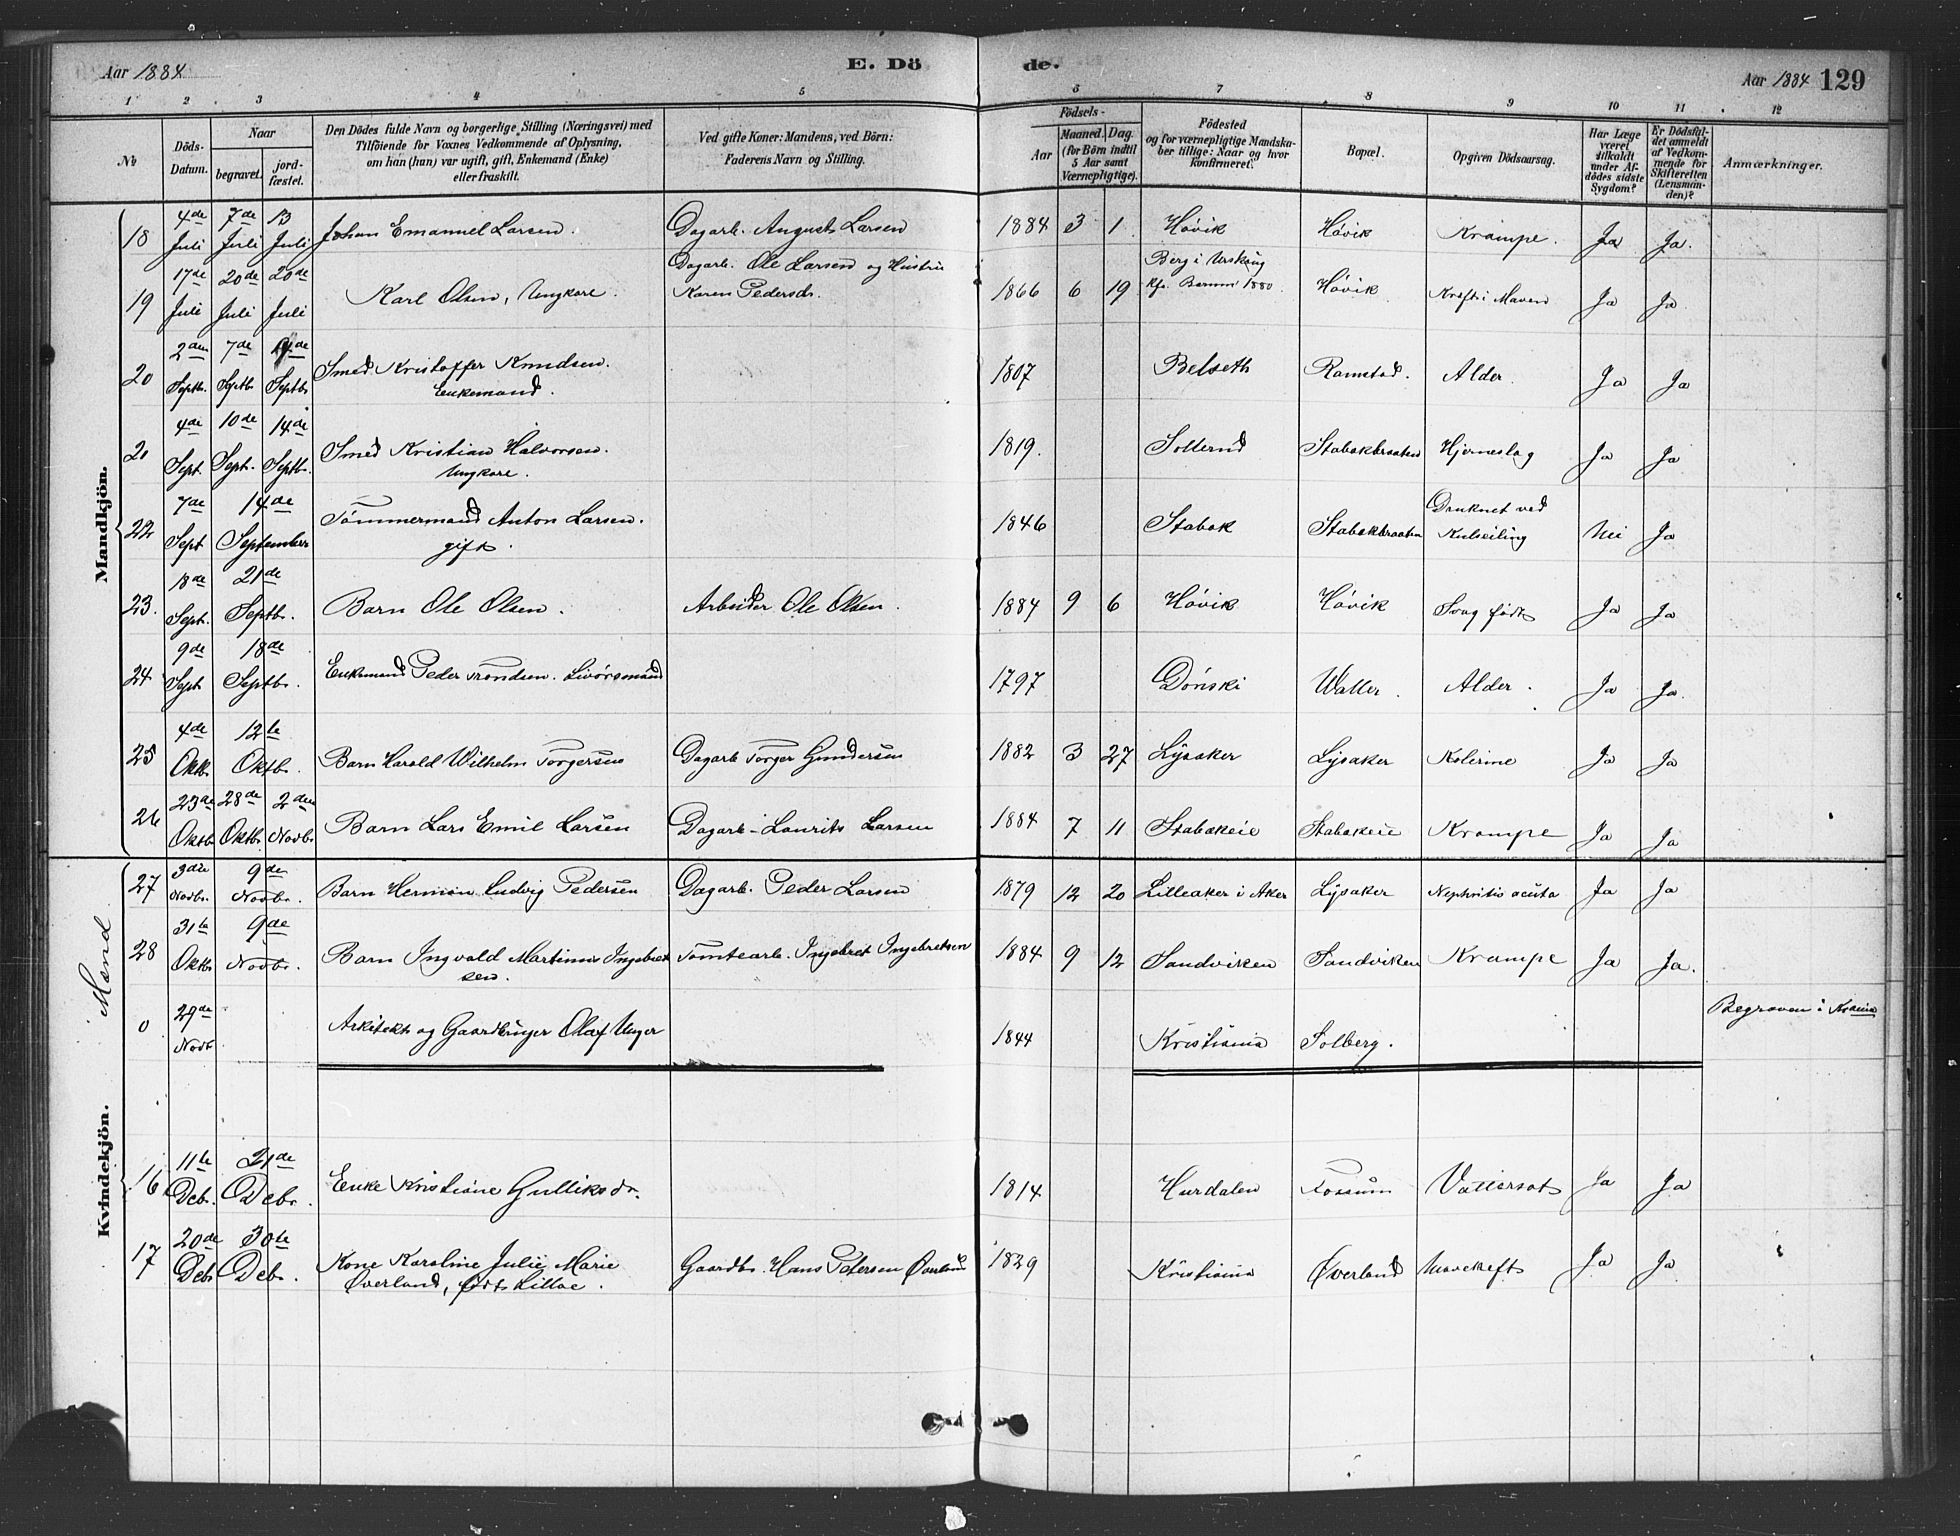 Aar 1884
E. Dö
de.
Aar 1884 129
1 2 3 4 5 6 7 8 9 10 11 12
No
Döds-
Datum.
Naar
begravet.
jord-
fæstet.
Den Dödes fulde Navn og borgerlige Stilling (Næringsvei) med
Tilföiende for Voxnes Vedkommende af Oplysning,
om han (hun) var ugift, gift, Enkemand (Enke)
eller fraskilt.
Ved gifte Koner: Mandens, ved Börn:
Faderens Navn og Stilling.
Födsels-
Aar
Maaned. Dag.
(for Börn indtil
5 Aar samt
Værnepligtige).
Födested
og for værnepligtige Mandska-
ber tillige: Naar og hvor
konfirmeret.
Bopæl.
Opgiven Dödsaarsag.
Har Læge
været
tilkaldt
under Af-
dödes sidste
Sygdom?
Er Dödsfal-
det anmeldt
af Vedkom-
mende for
Skifteretten
(Lensman-
den)?
Anmærkninger.
Mandkjön.
18 4de Juli 7de Juli 13 Juli Johan Emanuel Larsen. Dagarb. August Larsen 1884 3 1. Høvik Høvik Krampe. Ja Ja.
19 17de Juli 20de Juli 20de Juli Karl Olsen, Ungkarl. Dagarb. Ole Larsen og Hustru
Karen Pedersdr. 1866 6 19 Berg i Urskoug
Kfr. Bærum 1880 Høvik Kræft i Maven Ja Ja
20 2den Septbr. 7de Septbr 14de Septbr Smed Kristoffer Knudsen.
Enkemand. 1807 Belseth Ramstad. Alder. Ja Ja
2 4de Sept. 10de Sept. 14de Septbr. Smed Kristian Halvorsen.
Ungkarl. 1819. Solterud Stabækbraaten Hjerneslag Ja Ja
22 7de Sept 14de September Tømmermand Anton Larsen.
gift. 1846 Stabæk Stabækbraaten Druknet ved
Kulseiling Nei Ja
23. 18de Sept. 21de Septbr. Barn Ole Olsen. Arbeider Ole Olsen. 1884 9 6 Høvik Høvik Svag født Ja Ja
24 9de Sept 18de Septbr. Enkemand Peder Trondsen. Livörsmand 1797 Dønski Waller. Alder. Ja Ja.
25 4de Oktbr. 12te Oktbr. Barn Harald Wilhelm Torgersen Dagarb Torger Gundersen 1882 3 27 Lysaker Lysaker Kolerine Ja Ja
26 23de Oktbr 28de Oktbr. 2den Novbr. Barn Lars Emil Larsen Dagarb. Laurits Larsen 1884 7 11 Stabækeie Stabækeie Krampe Ja Ja
Mand
27 3die Novbr. 9de Novbr. Barn Herman Ludvig Pedersen Dagarb. Peder Larsen 1879 12 20 Lilleaker i Aker Lysaker Nephritis acuta Ja Ja
28 31te Oktbr 9de Novbr. Barn Ingvald Martinus Ingebret
sen. Tomtearb. Ingebret Ingebretsen 1884 9 12 Sandviken Sandviken Krampe Ja Ja.
0 29de Novbr Arkitekt og Gaardbruger Olaf Unger 1844 Kristiania Solberg. Begraven i Krania
Kvindekjön.
16 11te Debr. 21de Debr. Enke Kristiane Gulliksdr. 1814 Hurdalen Fossum Vattersot Ja Ja
17 20de Debr 30te Debr. Kone Karoline Julie Marie
Øverland, født Lilloe. Gaardbr. Hans Petersen 1829 Kristiania Øverland Mavekræft Ja Ja